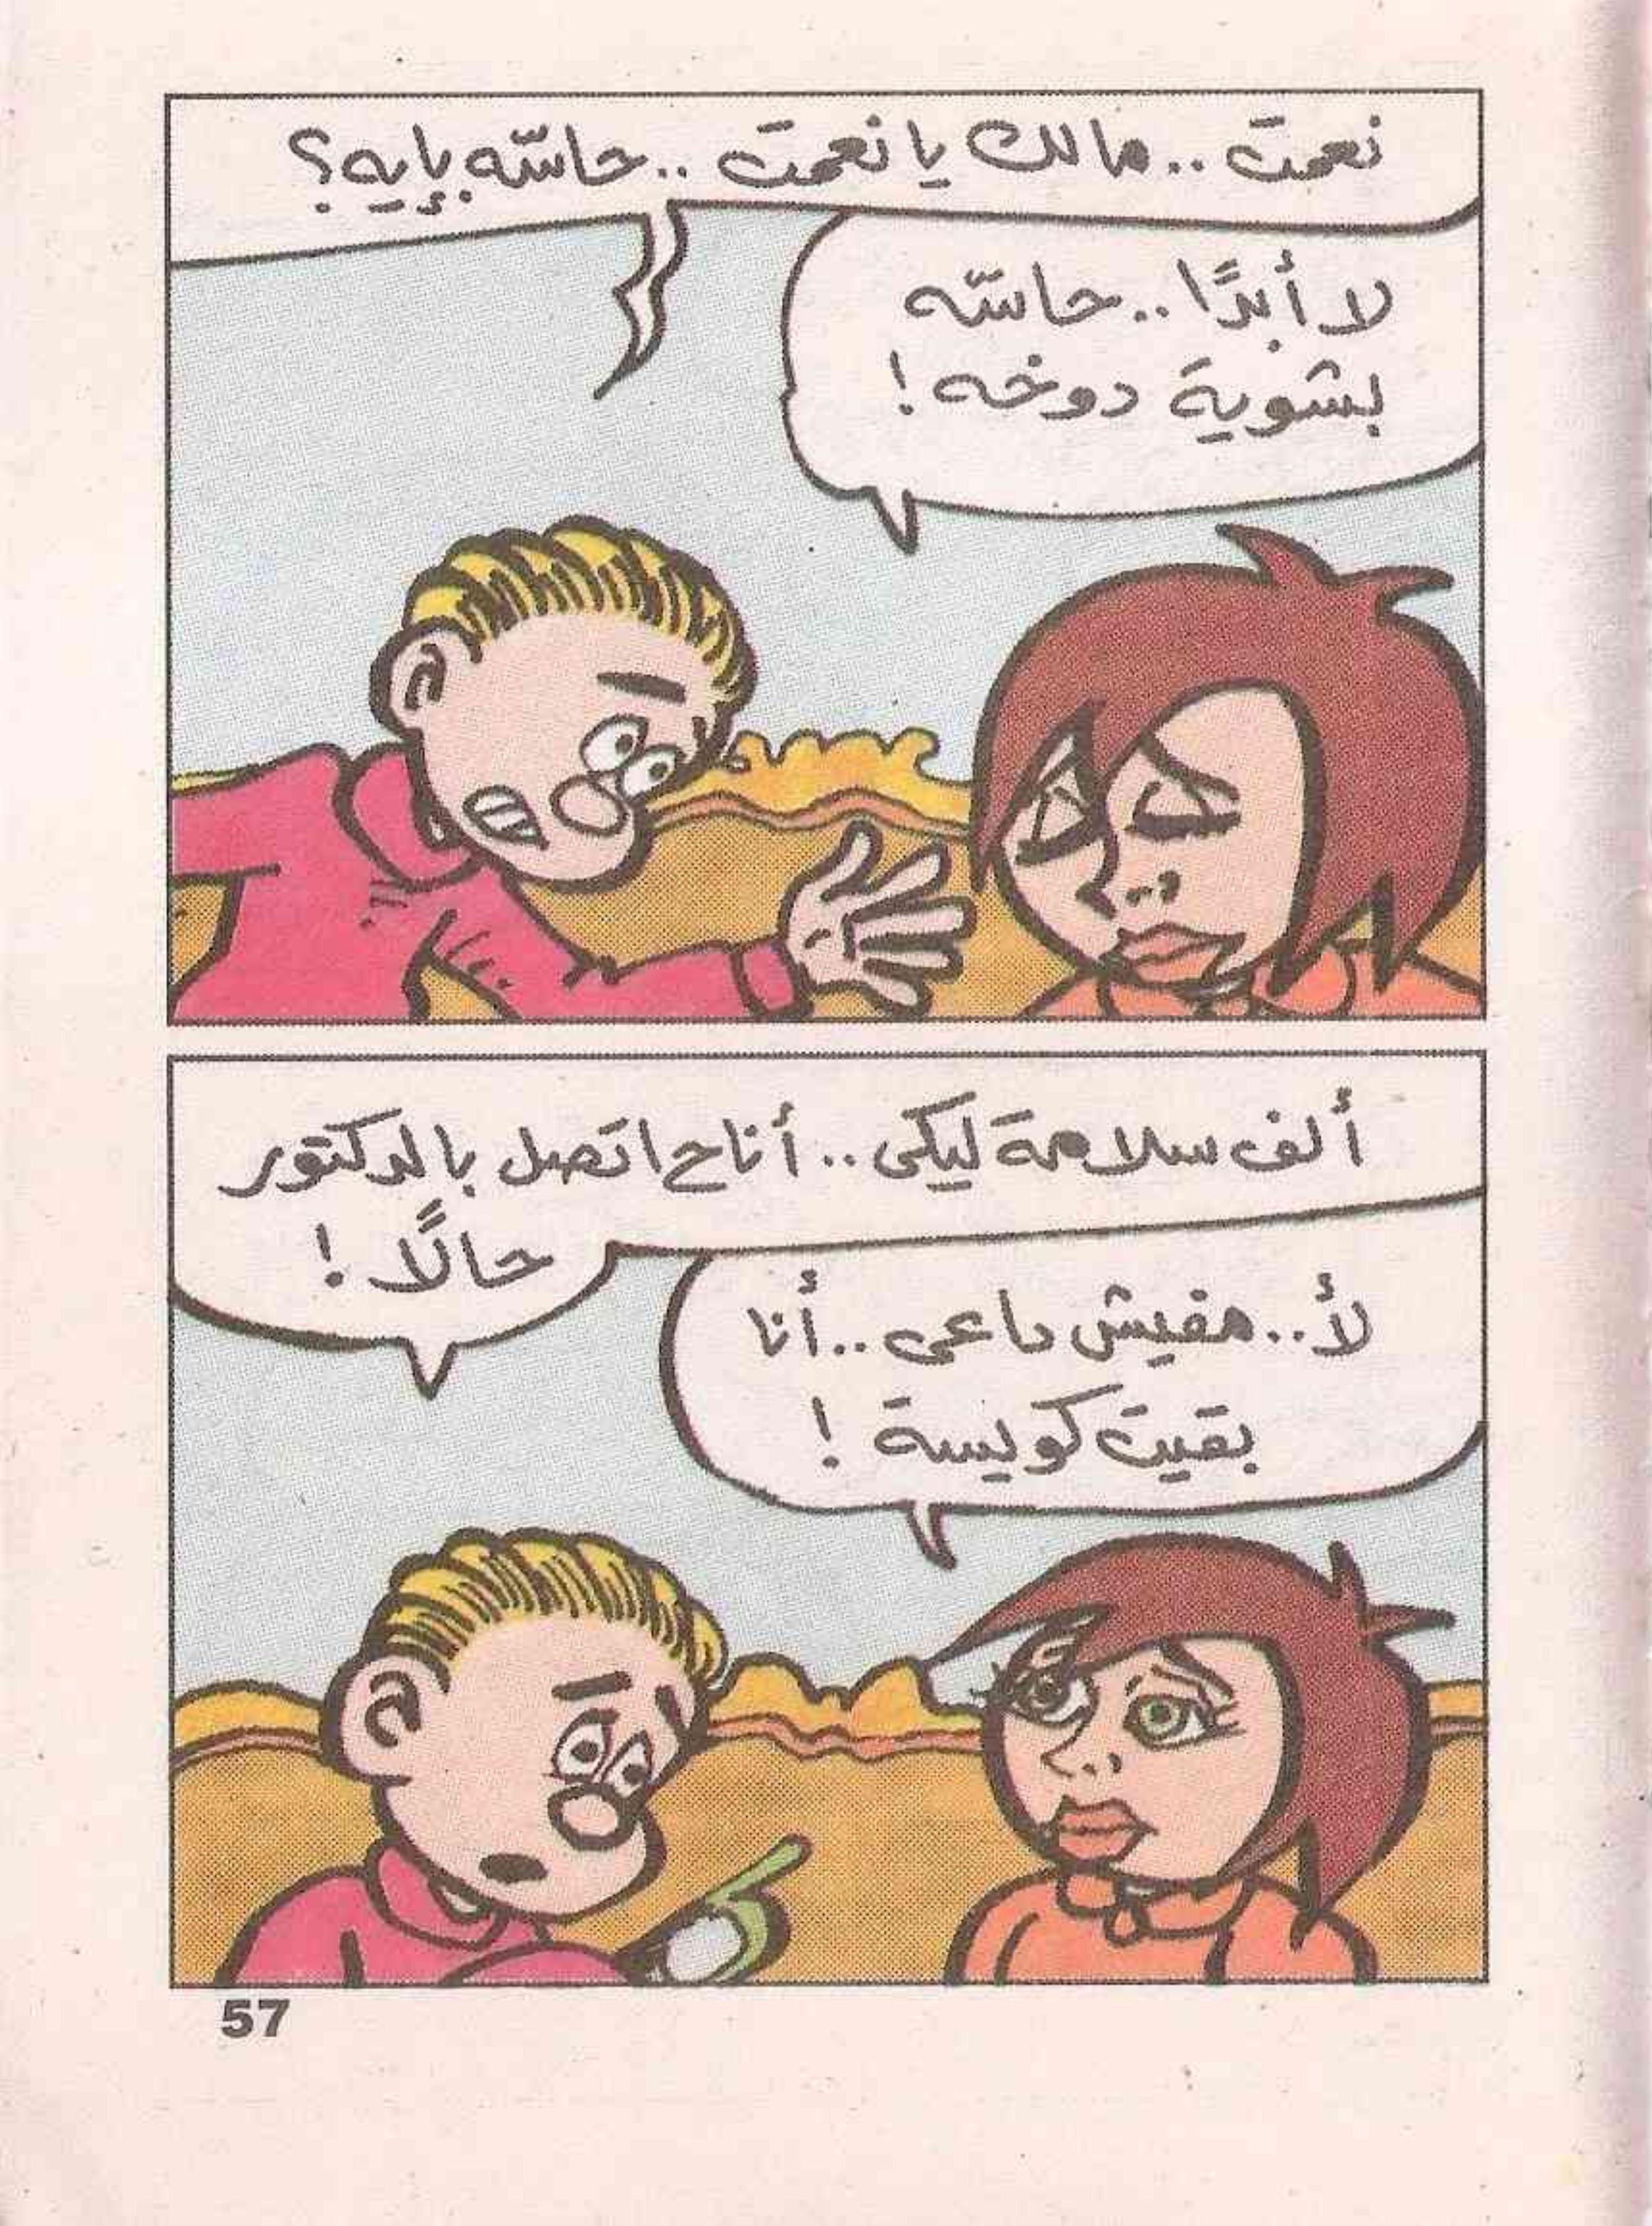 نعمت .. مالك يا نعمت .. حاسّه بإيه؟
لا أبدًا .. حاسّه
بشوية دوخه !
ألف سلامة ليكى .. أنا ح اتصل بالدكتور
حالًا !
لأ .. مفيش داعى .. أنا
بقيت كويسة !
57